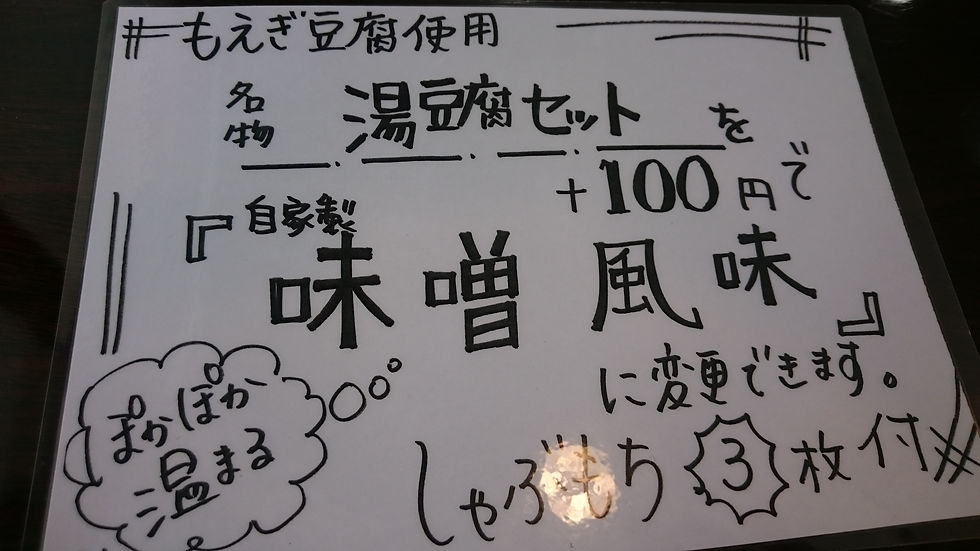 もえぎ豆腐使用
名物 湯豆腐セットを
+100円で
『自家製
味噌風味』
に変更できます。
ぽかぽか
温まる
しゃぶもち3枚付